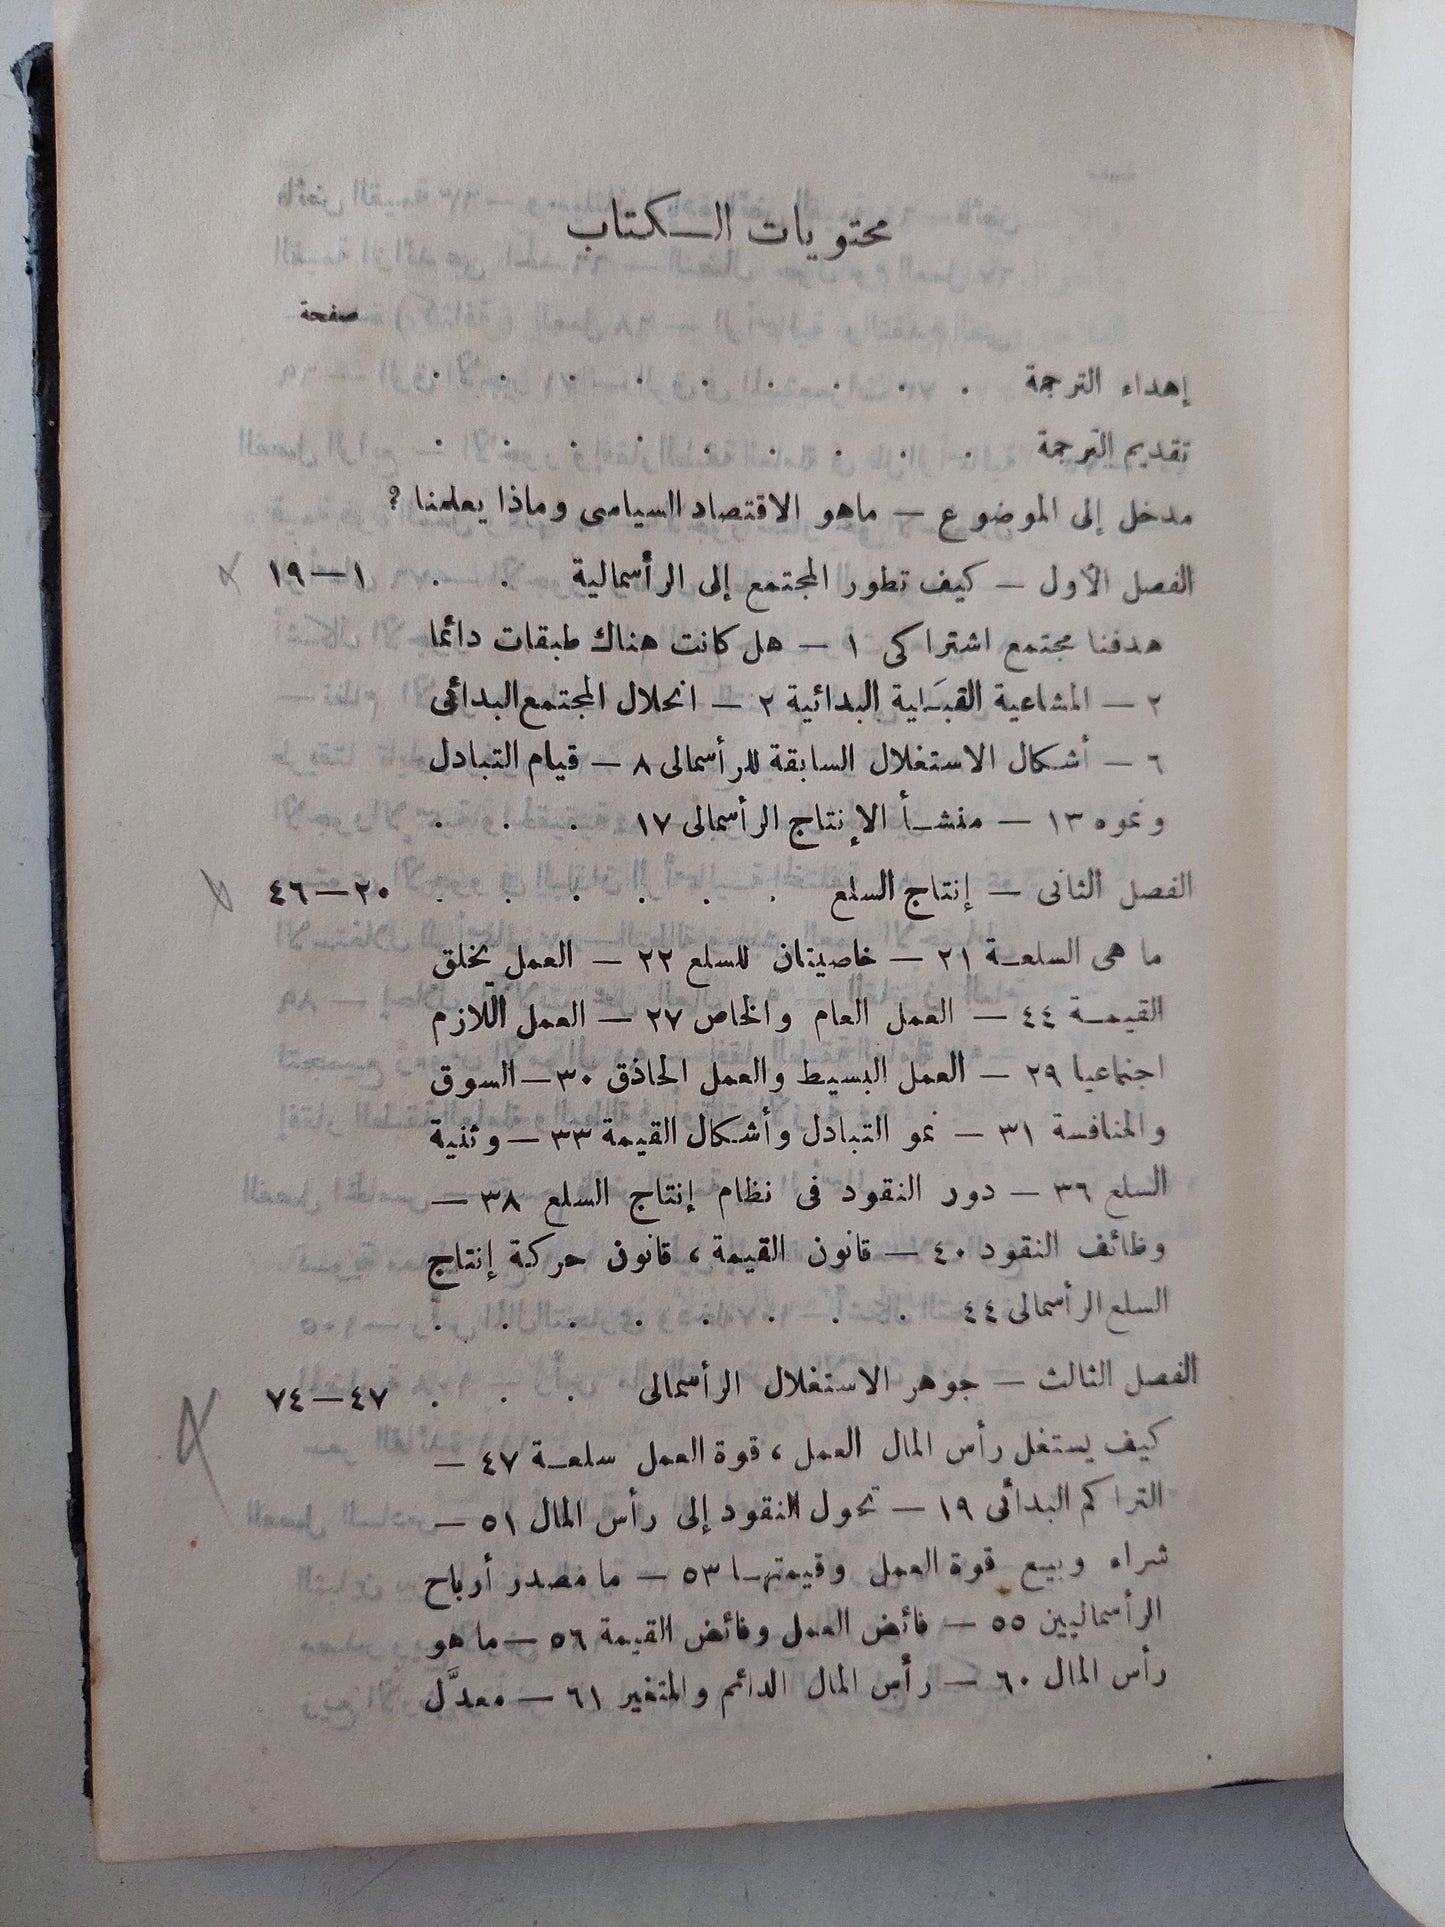 محتويات الكتاب
صفحة
إهداء الترجمة . . . . . . . . .
تقديم الترجمة . . . . . . . . .
مدخل إلى الموضوع — ماهو الاقتصاد السياسى وماذا يعلمنا ؟
الفصل الأول — كيف تطور المجتمع إلى الرأسمالية . . ١—١٩
هدفنا مجتمع اشتراكى ١ — هل كانت هناك طبقات دائما
٢ — المشاعية القبلية البدائية ٢ — انحلال المجتمع البدائى
٦ — أشكال الاستغلال السابقة للرأسمالى ٨ — قيام التبادل
ونموه ١٣ — منشأ الإنتاج الرأسمالى ١٧ . . .
الفصل الثانى — إنتاج السلع . . . . . . ٢٠—٤٦
ما هى السلعة ٢١ — خاصيتان للسلع ٢٢ — العمل يخلق
القيمة ٤٤ — العمل العام والخاص ٢٧ — العمل اللّازم
اجتماعيا ٢٩ — العمل البسيط والعمل الحاذق ٣٠ — السوق
والمنافسة ٣١ — نمو التبادل وأشكال القيمة ٣٣ — وثنية
السلع ٣٦ — دور النقود فى نظام إنتاج السلع ٣٨ —
وظائف النقود ٤٠ — قانون القيمة ، قانون حركة إنتاج
السلع الرأسمالى ٤٤ . . . . . . . .
الفصل الثالث — جوهر الاستغلال الرأسمالى . . . ٤٧—٧٤
كيف يستغل رأس المال العمل ، قوة العمل سلعة ٤٧ —
التراكم البدائى ١٩ — تحول النقود إلى رأس المال ٥١ —
شراء وبيع قوة العمل وقيمتها ٥٣ — ما مصدر أرباح
الرأسماليين ٥٥ — فائض العمل وفائض القيمة ٥٦ — ما هو
رأس المال ٦٠ — رأس المال الدائم والمتغير ٦١ — معدَّل